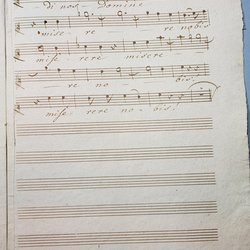 di nos Domine
mise- re re nobis
mise- rere misere
re no- bis.
mise- rere no- bis.